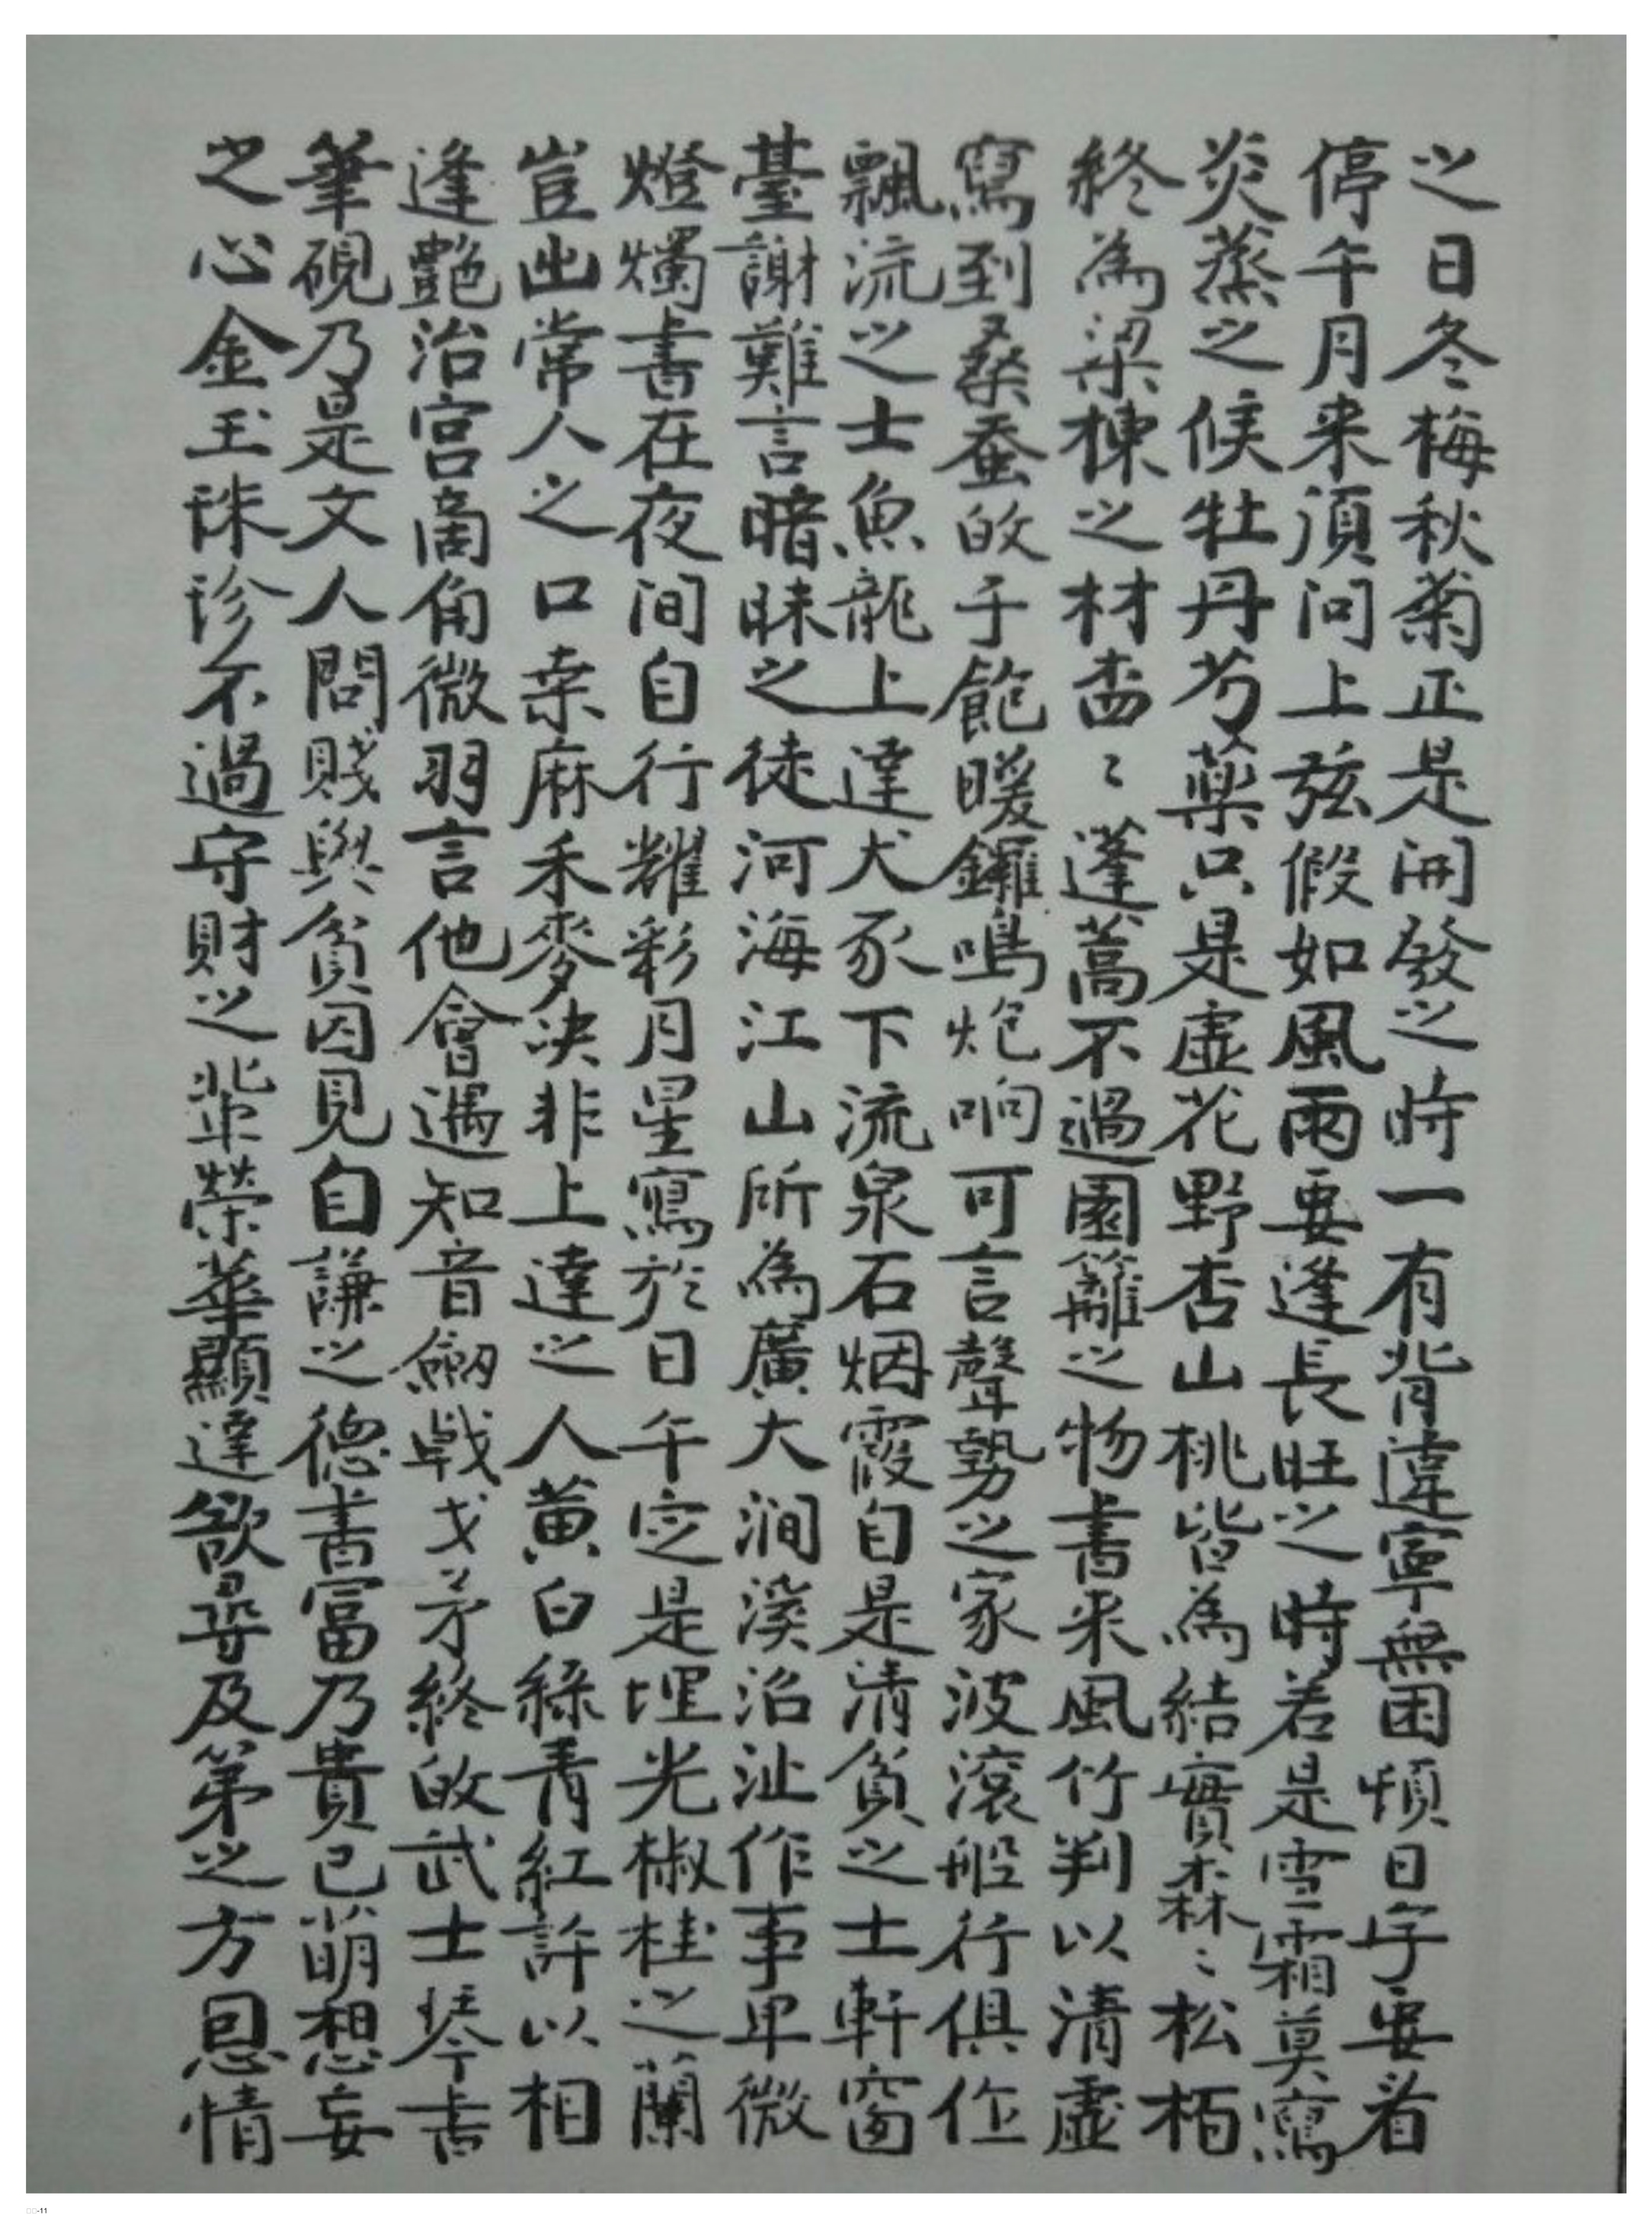 之日冬梅秋菊正是開發之時一有背違寧無困煩日字要看
停午月来須问上弦假如風雨要逢長旺之時若是雪霜莫寫
炎蒸之候牡丹芍藥只是虛花野杏山桃皆為結實森〻松栢
終為梁棟之材盉〻蓬蒿不過園籬之物書来風竹判以清虛
寫到桑蚕的于飽暖鑼鳴炮响可言聲勢之家波滾船行俱作
飄流之士魚龍上達犬豕下流泉石烟霞自是清貧之士軒窗
臺謝難言暗昧之徒河海江山所為廣大涧溪沼沚作事卑微
燈燭書在夜间自行耀彩月星寫於日午定是埋光椒桂之蘭
豈出常人之口桒麻禾麥决非上達之人黄白綠青紅許以相
逢艷治宫啇角微羽言他會遇知音劔戟戈矛終的武士琴书
筆硯乃是文人問賤與貧因見自謙之德書富乃貴已萌想妄
之心金玉珠珍不過守財之輩榮華顯達欲尋及第之方恩情